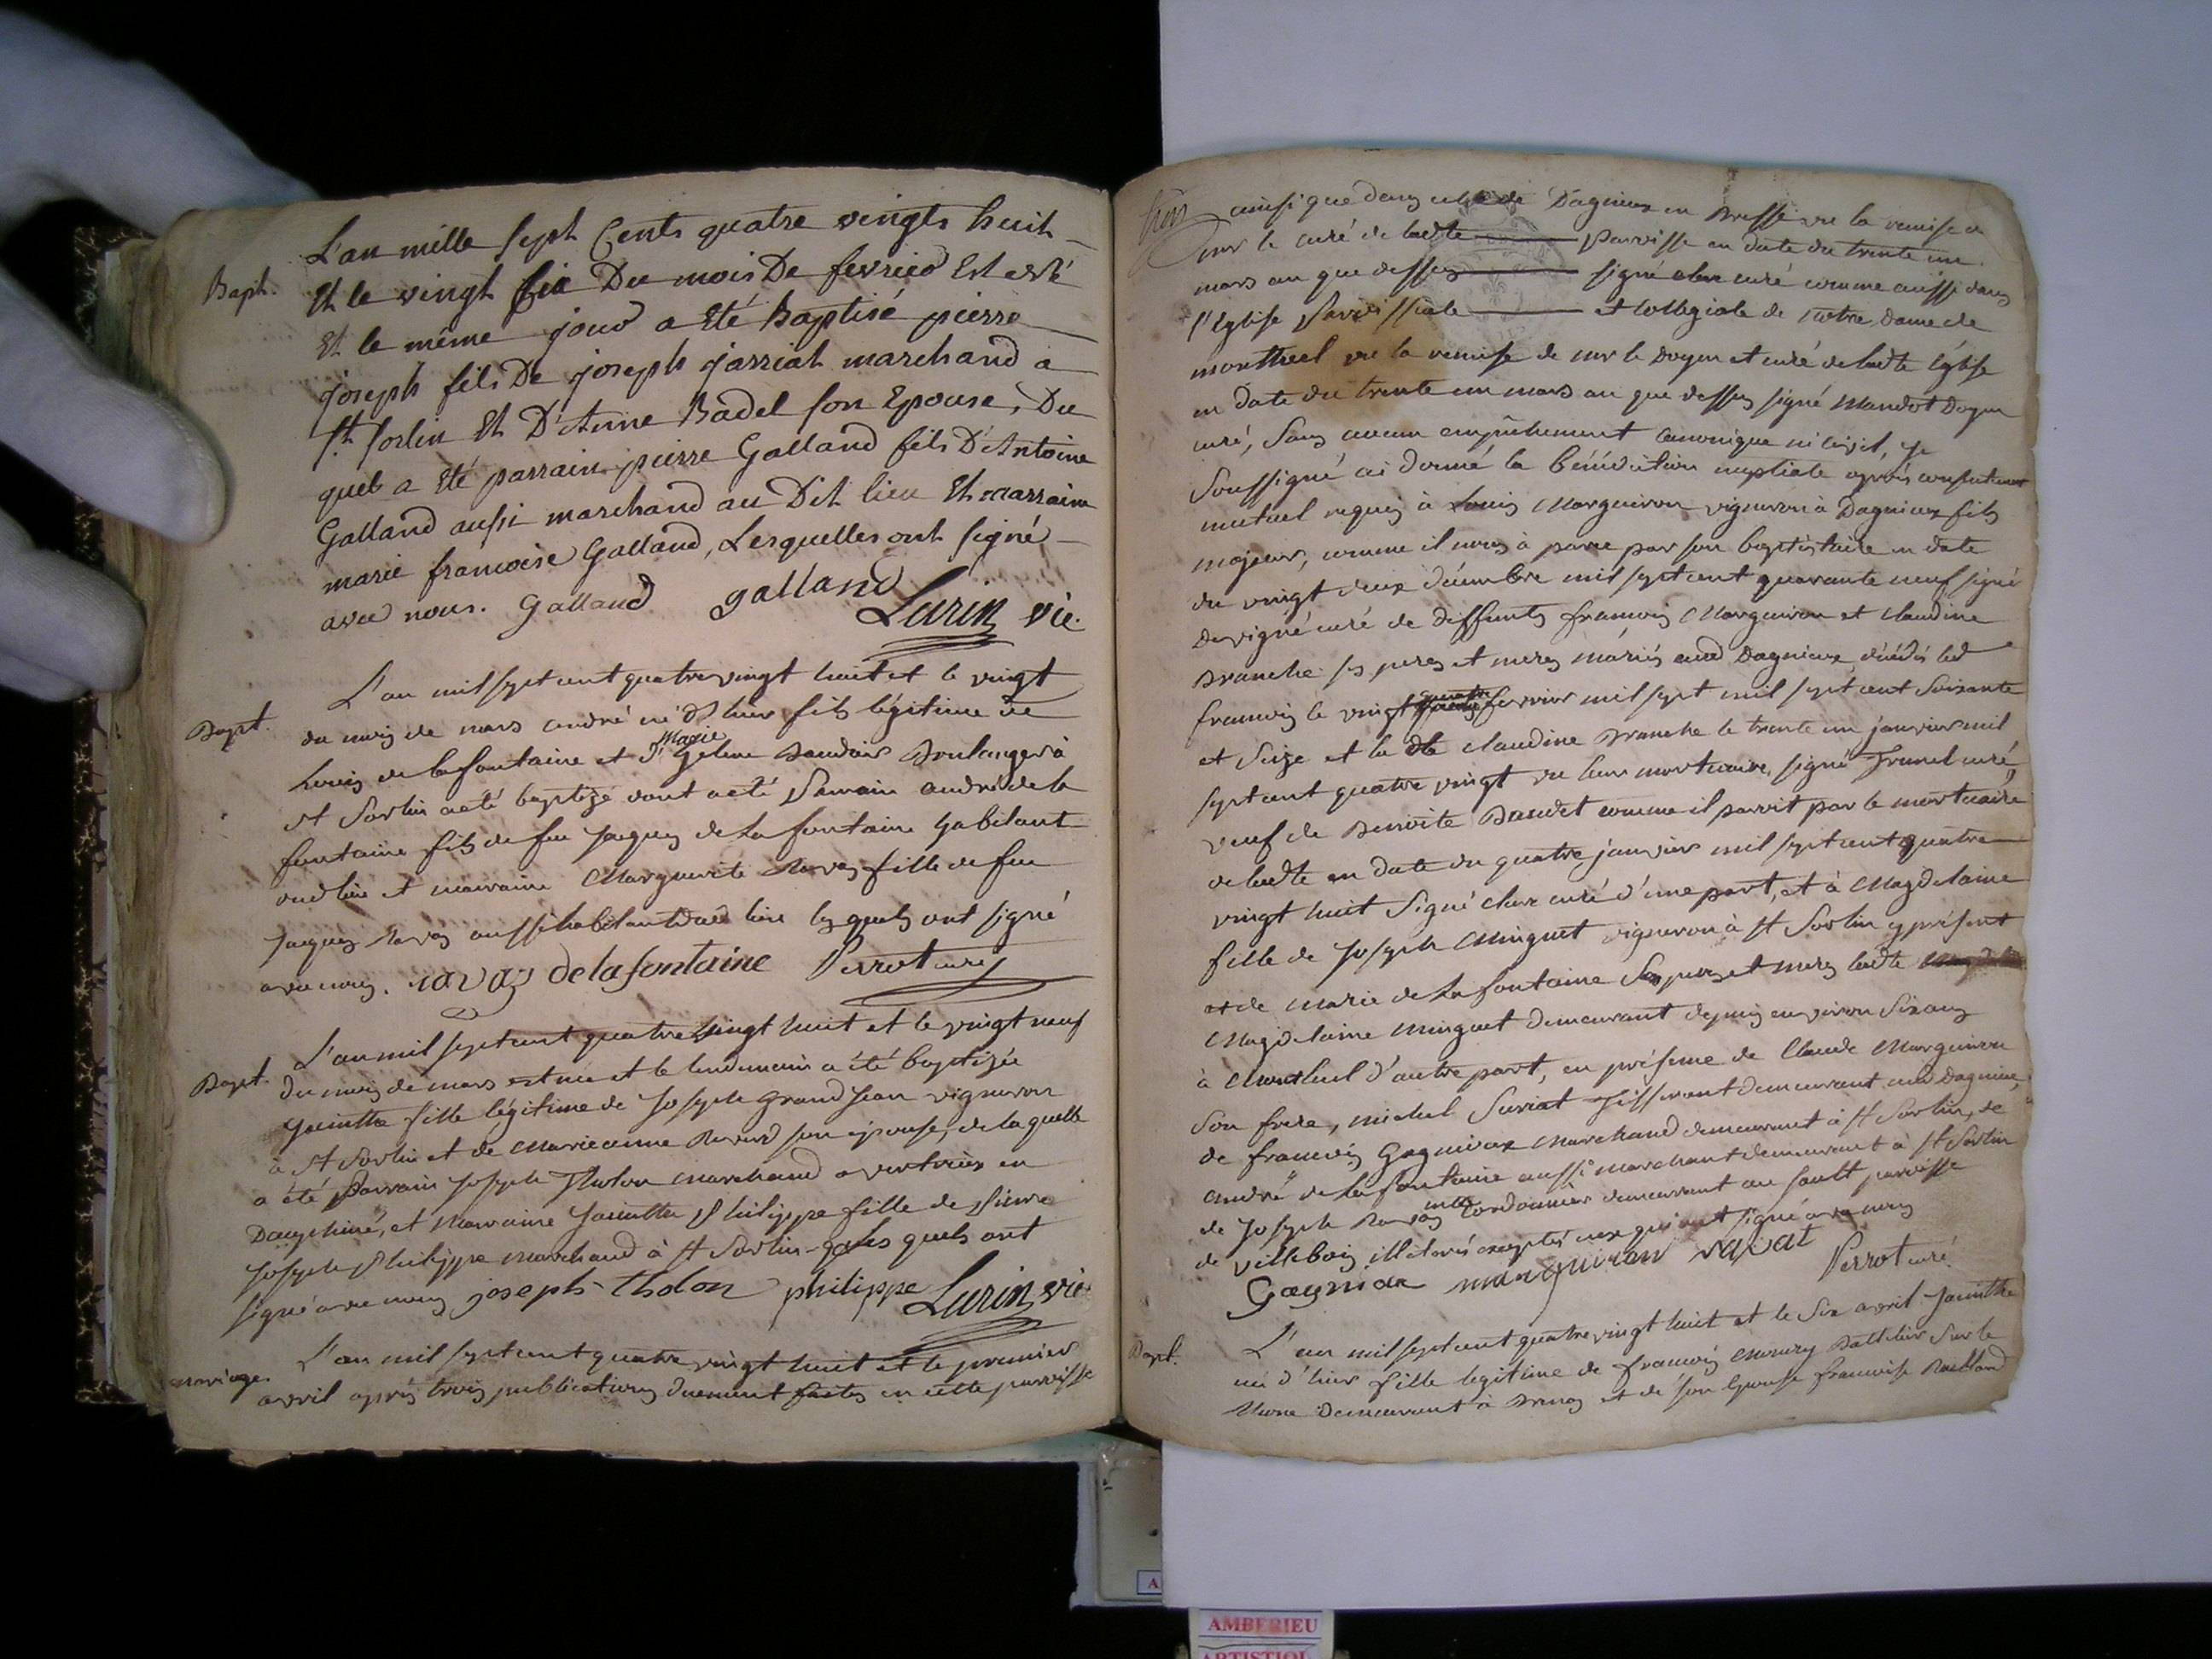 L'an mille sept Cents quatre vingts huit
Bapt. Et le vingt six Du mois De fevrier Est esté
Et le même jour a Eté Baptisé pierre
joseph fils De joseph jarriat marchand a
St. sorlin Et D'Anne Badel son Epouse, Du
quel a Eté parrain pierre Galland fils D'Antoine
Galland aussi marchand au Dit lieu Et marraine
marie francoise Galland, Lesquelles ont signé
avec nous. Galland galland
Lurin vic.
L'an mil sept cent quatre vingt huit et le vingt
Bapt. du mois de mars andré né d'hier fils légitime de
Marie
Louis de lafontaine et Baudoir Boulanger à
St Sorlin a été baptizé dont a été Parrain andré de la
fontaine fils de feu Jaques de la fontaine habitant
audt lieu et marraine Marguerite Ravas fille de feu
Jaques Ravas aussi habitant dud lieu lesquels ont signé
avec nous. ravas delafontaine Perrot curé
L'an mil sept cent quatre vingt huit et le vingt neuf
Bapt. du mois de mars est née et le lendemain a été baptizée
Jacinthe fille légitime de Joseph Grand Jean vigneron
à St Sorlin et de Marieanne Revord son épouse, de laquelle
a été Parrain Joseph Tholon marchand a vertrieu en
Dauphiné, et Marraine Jacinthe Philippe fille de Pierre
Joseph Philippe marchand à St Sorlin lesquels ont
signé avec nous joseph tholon philippe Lurin vic
mariage. L'an mil sept cent quatre vingt huit et le premier
avril après trois publications duement faites en cette paroisse
ainsi que dans celle de Dagnieux en Bresse vu la remise de
mr le curé de ladte paroisse en date du trente un
mars an que dessus signé clerc curé comme aussi dans
l'Eglise Paroissiale et collegiale de notre dame de
montluel vu la remise de mr le Doyen et curé de ladte Eglise
en date du trente un mars an que dessus signé Mandot Doyen
curé, Sans aucun empêchement canonique ni civil, je
Soussigné ai donné la bénédiction nuptiale après consentement
mutuel requis à Louis Marguiron vigneron à Dagnieux fils
majeur, comme il nous à parue par son baptistaire en date
du vingt deux décembre mil sept cent quarante neuf signé
Devigné curé de deffunts francois Marguiron et claudine
Branche ses peres et meres mariés aud Dagnieux, décédés led
quatre
francois le vingt fevrier mil sept mil sept cent soixante
et Seize et la dte claudine Branche le trente un janvier mil
sept cent quatre vingt vu leurs mortuaires signé Trunel curé,
veuf de Benoite Baudet comme il paroit par le mortuaire
de ladte en date du quatre janvier mil sept cent quatre
vingt huit Signé clerc curé d'une part, et à Magdelaine
fille de Joseph Minguet vigneron à St Sorlin y présent
et de Marie de la fontaine Ses peres et meres ladte
Magdelaine Minguet demeurant depuis environ Six ans
à Montluel d'autre part, en présence de Claude Marguiron
Son frere, michel Suriat Tisserant demeurant aud Dagnieux,
de francois Gagnieux Marchand demeurant à St Sorlin, de
andré de la fontaine aussi marchant demeurant à St Sorlin
de Joseph Ravas cordonnier demeurant au sault paroisse
de villebois illiterés exceptés ceux qui ont signé avec nous
Gagnieux marguiron Perrot curé
Bapt. L'an mil sept cent quatre vingt huit et le Six avril Jacinthe
né d'hier fille légitime de francois Battelier Sur le
Rhone Demeurant à et de son Epouse francoise
AMBERIEU